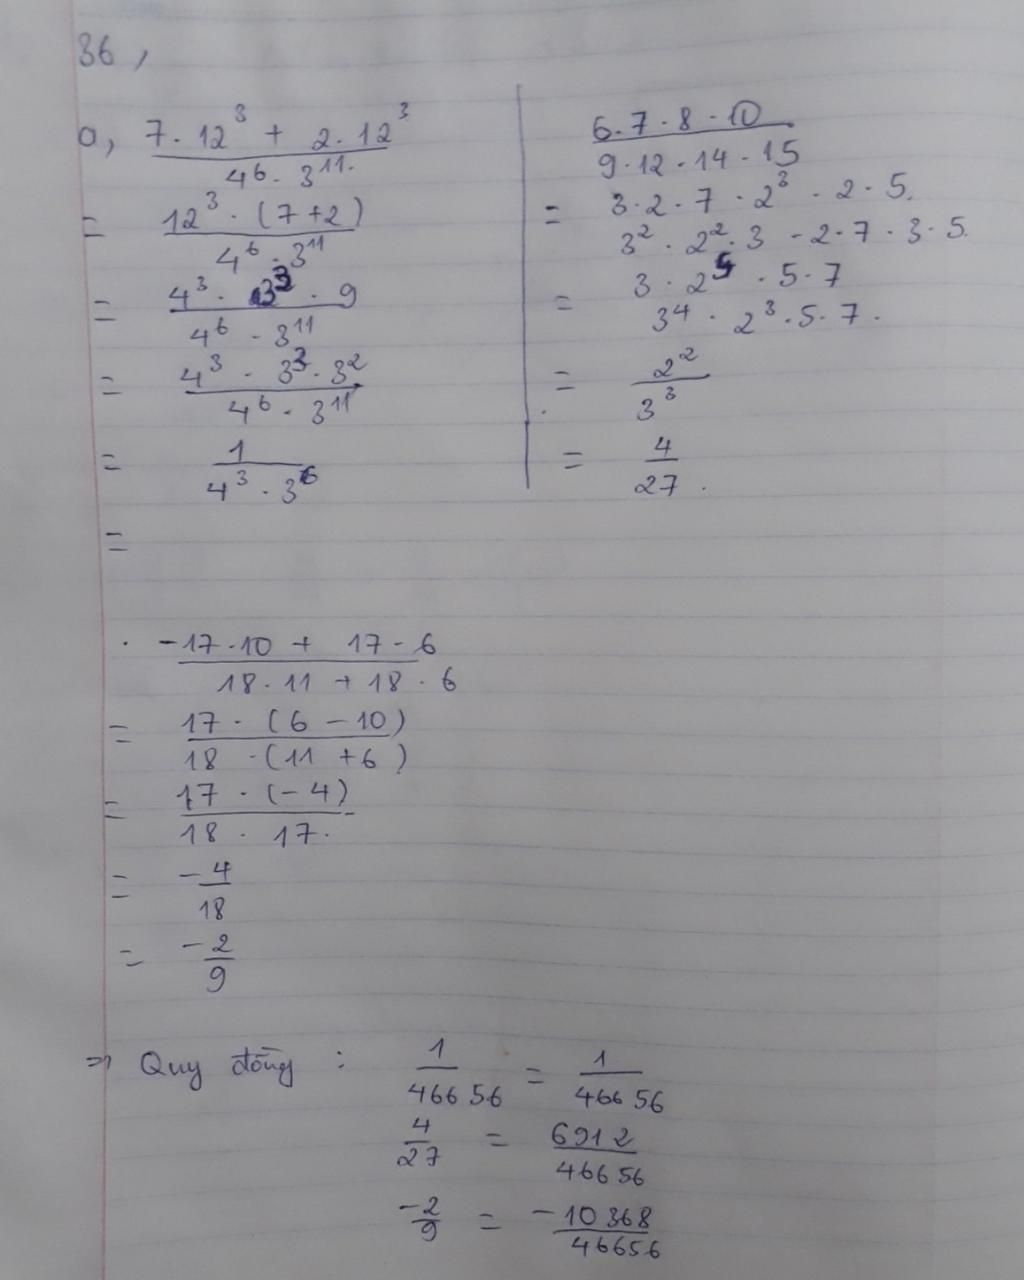 36,
a, (7 . 12³ + 2 . 12³) / (4⁶ . 3¹¹)
= (12³ . (7 + 2)) / (4⁶ . 3¹¹)
= (4³ . 3³ . 9) / (4⁶ . 3¹¹)
= (4³ . 3³ . 3²) / (4⁶ . 3¹¹)
= 1 / (4³ . 3⁶)
=
(6 . 7 . 8 . 10) / (9 . 12 . 14 . 15)
= (3 . 2 . 7 . 2³ . 2 . 5) / (3² . 2² . 3 . 2 . 7 . 3 . 5)
= (3 . 2⁵ . 5 . 7) / (3⁴ . 2³ . 5 . 7)
= 2² / 3³
= 4 / 27.
. (-17 . 10 + 17 . 6) / (18 . 11 + 18 . 6)
= (17 . (6 - 10)) / (18 . (11 + 6))
= (17 . (-4)) / (18 . 17)
= -4 / 18
= -2 / 9
=> Quy đồng : 1 / 46656 = 1 / 46656
4 / 27 = 6912 / 46656
-2 / 9 = -10368 / 46656